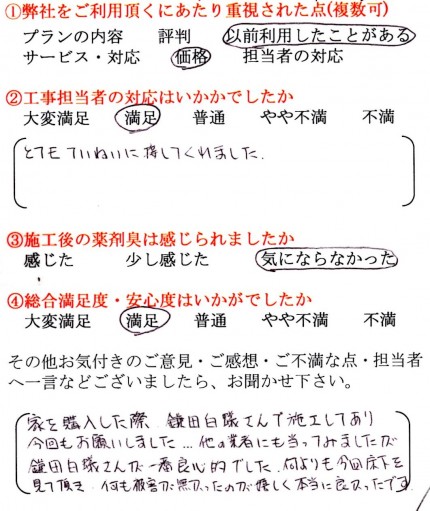 ①弊社をご利用頂くにあたり重視された点(複数可)
プランの内容　評判　以前利用したことがある
サービス・対応　価格　担当者の対応
②工事担当者の対応はいかかでしたか
大変満足　満足　普通　やや不満　不満
とてもていねいに接してくれました.
③施工後の薬剤臭は感じられましたか
感じた　少し感じた　気にならなかった
④総合満足度・安心度はいかがでしたか
大変満足　満足　普通　やや不満　不満
その他お気付きのご意見・ご感想・ご不満な点・担当者
へ一言などございましたら、お聞かせ下さい。
家を購入した際 鎌田白蟻さんで施工してあり
今回もお願いしました…他の業者にも当ってみましたが
鎌田白蟻さんが一番良心的でした. 何よりも今回床下を
見て頂き 何も被害が無かったのが嬉しく本当に良かったです.